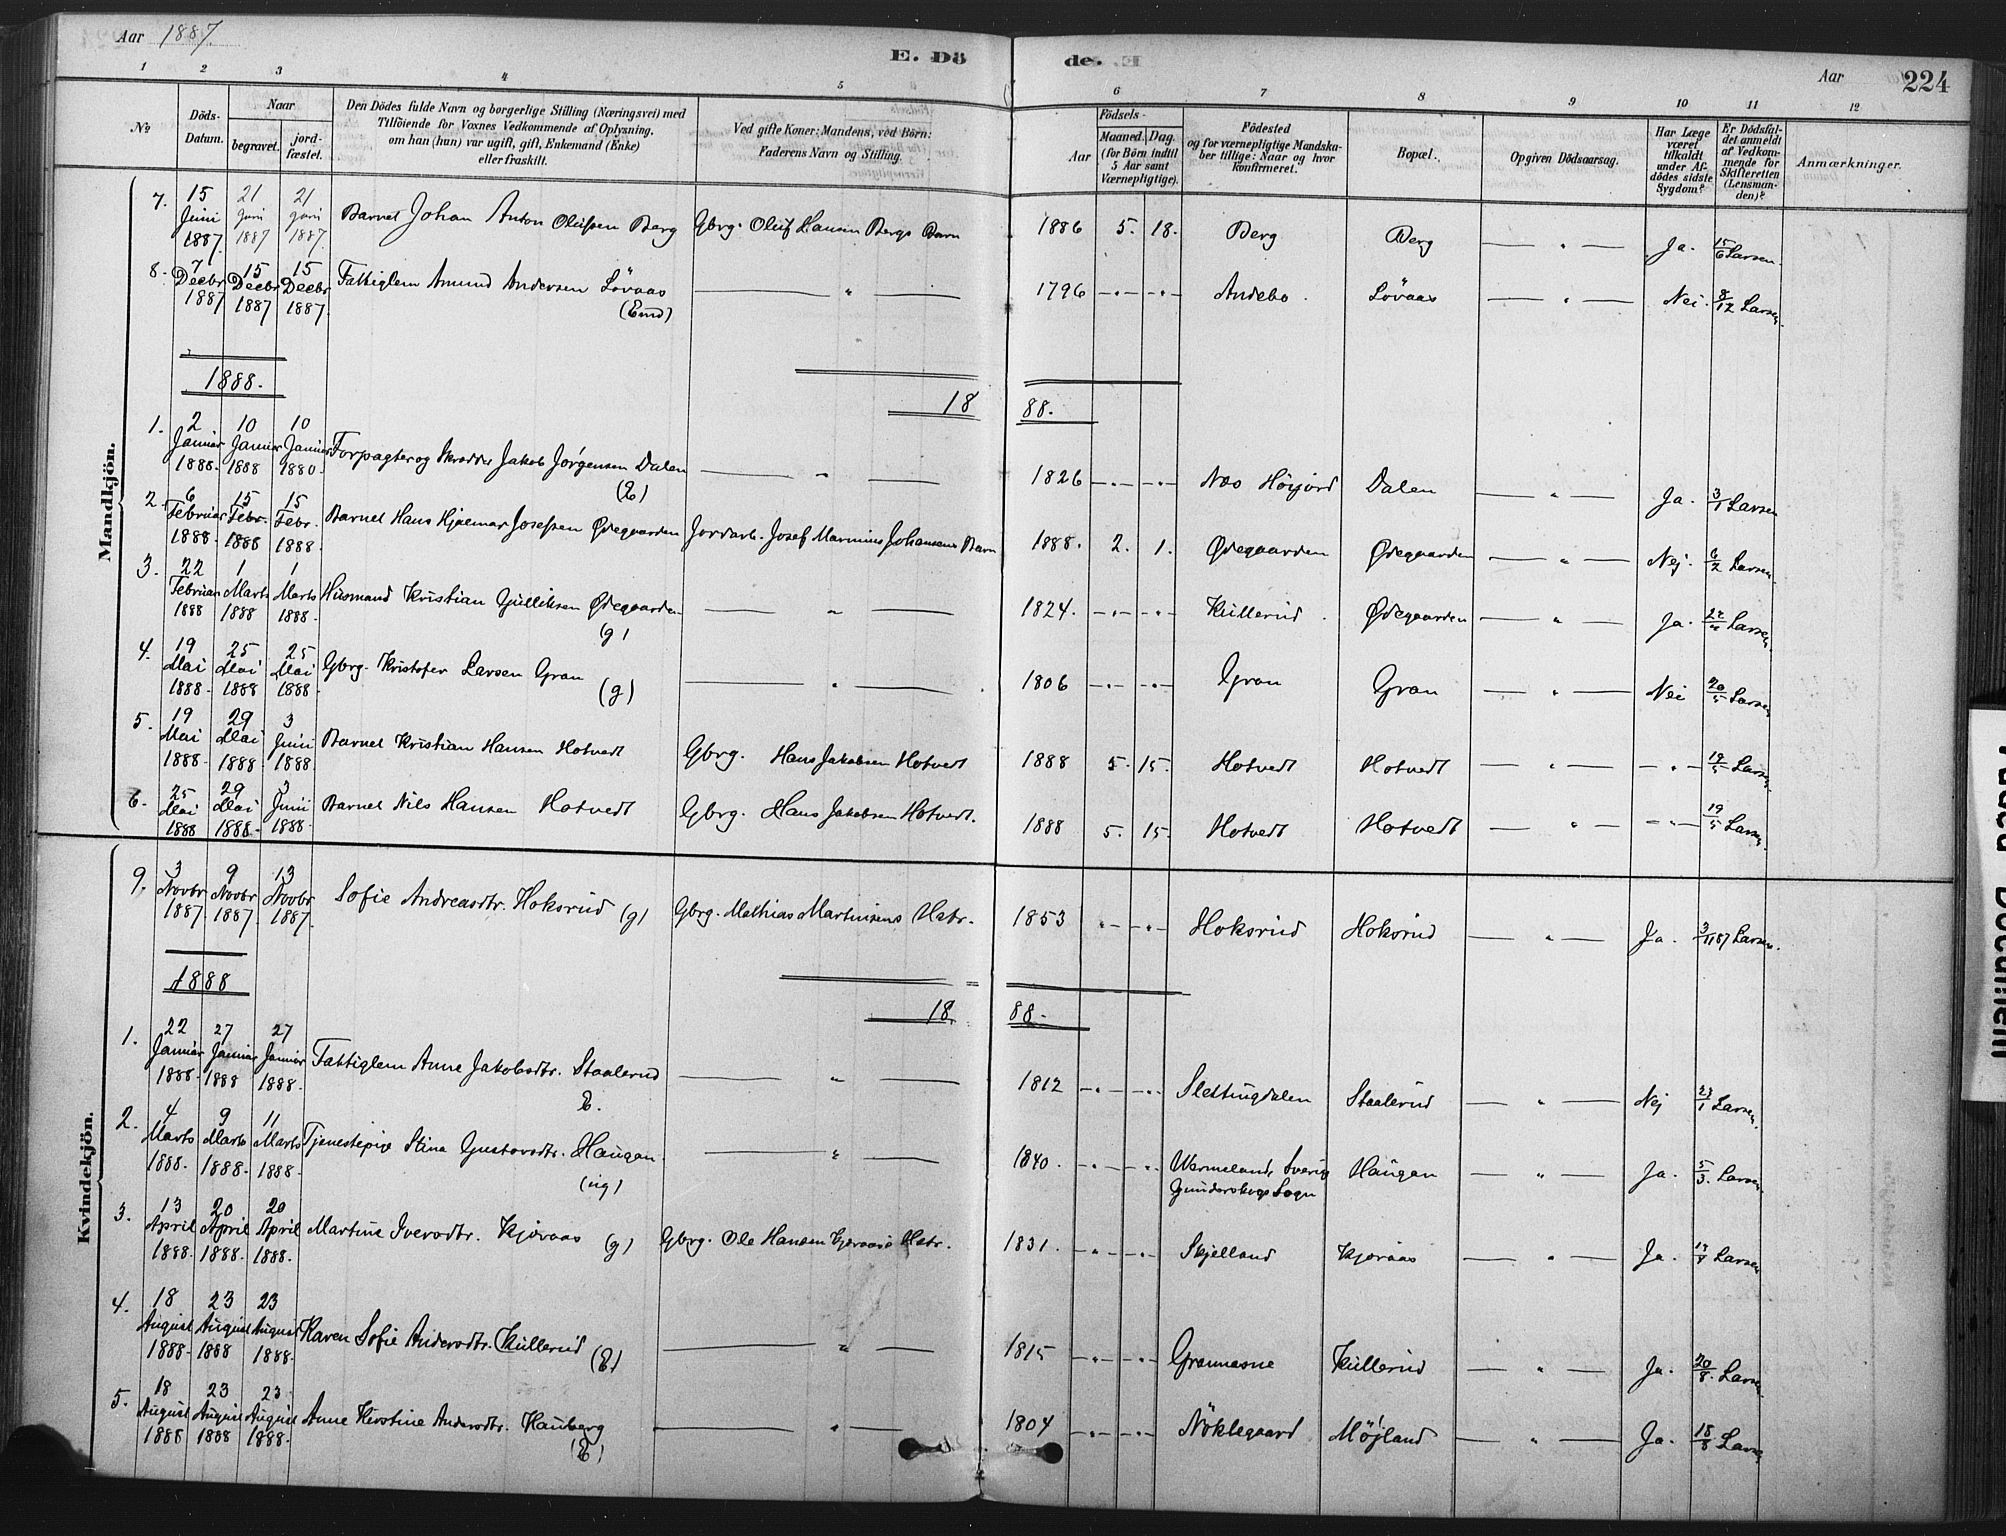 Aar 1887.
E. Dö de.
Aar 224
1 2 3 4 5 6 7 8 9 10 11 12
No
Döds-Datum.
Naar
begravet.
jordfæstet.
Den Dödes fulde Navn og borgerlige Stilling (Næringsvei) med
Tilföiende for Voxnes Vedkommende af Oplysning,
om han (hun) var ugift, gift, Enkemand (Enke)
eller fraskilt.
Ved gifte Koner: Mandens, ved Börn:
Faderens Navn og Stilling.
Födsels-
Aar
Maaned. Dag.
(for Börn indtil
5 Aar samt
Værnepligtige).
Födested
og for værnepligtige Mandskaber tillige: Naar og hvor
konfirmeret.
Bopæl.
Opgiven Dödsaarsag.
Har Læge
været
tilkaldt
under Afdödes sidste
Sygdom?
Er Dödsfaldet anmeldt
af Vedkommende for
Skifteretten
(Lensmanden)?
Anmærkninger.
Mandkjön.
7. 15 Juni 1887. 21 Juni 1887 21 Juni 1887. Barnet Johan Anton Olufsen Berg Gbrg. Oluf Hansen Bergs Barn 1886 5. 18. Berg Berg — " — Ja. 15/6 Larsen.
8. 7 Decbr 1887 15 Decbr 1887 15 Decbr 1887. Fattiglem Amund Andersen Lövaas (Emd) — " — 1796 -"- -"- Andebo. Lövaas — " — Nei. 8/12 Larsen.
1888.
18 88.
1. 2 Januar 1888. 10 Januar 1888 10 Januar 1880. Forpagter og Skrædder Jakob Jörgensen Dalen — " — 1826 -"- -"- Næs Höijord Dalen — " — Ja. 3/1 Larsen
2. 6 Februar 1888. 15 Febr. 1888 15 Febr. 1888. Barnet Hans Hjalmar Josefsen Ødegaarden Jordarb. Josef Marinius Johansens Barn 1888. 2. 1. Ødegaarden Ødegaarden — " — Nej. 6/2 Larsen.
3. 22 Februar 1888 1 Marts 1888 1 Marts 1888. Husmand Kristian Gulliksen Ødegaarden (g) — " — 1824. -"- -"- Kullerud. Ødegaarden — " — Ja. Larsen.
4. 19 Mai 1888. 25 Mai 1888 25 Mai 1888. Gbrg. Kristofer Larsen Gran (g) — " — 1806 -"- -"- Gran Gran — " — Nei 20/5 Larsen
5. 19 Mai 1888. 29 Mai 1888. 3 Juni 1888. Barnet Kristian Hansen Hotvedt Gbrg. Hans Jakobsen Hotvedt 1888 5. 15. Hotvedt Hotvedt — " — -"- 19/5 Larsen.
6. 25 Mai 1888 29 Mai 1888. 3 Juni 1888. Barnet Nils Hansen Hotvedt Gbrg. Hans Jakobsen Hotvedt. 1888 5. 15. Hotvedt Hotvedt — " — -"- 19/5 Larsen.
Kvindekjön.
9. 3 Novbr 1887. 9 Novbr 1887. 13 Novbr 1887. Sofie Andreasdtr. Hoksrud (g) Gbrg. Mathias Martinsens Hstr. 1853 -"- -"- Hoksrud Hoksrud — " — Ja. 3/11 87 Larsen.
1888
18 88.
1. 22 Januar 1888. 27 Januar 1888 27 Januar 1888. Fattiglem Anne Jakobsdtr. Staalerud E. — " — 1812 -"- -"- Slettingdalen Staalerud — " — Nej 23/1 Larsen.
2. 4 Marts 1888. 9 Marts 1888. 11 Marts 1888. Tjenestepige Stina Gustavsdtr. Haugan. (ug) — " — 1840. -"- -"- Wermeland, Sverig Gunderskogs Sogn Haugan — " — Ja. 5/3. Larsen.
3. 13 April 1888. 20 April 1888. 20 April 1888. Martine Iversdtr. Kjøraas (g) Gbrg. Ole Hansen Kjøraas's Hstr. 1831. -"- -"- Skjelland Kjøraas — " — Ja. Larsen
4. 18 August 1888. 23 August 1888 23 August 1888. Karen Sofie Andersdtr. Kullerud (E) — " — 1815 -"- -"- Grannesne Kullerud — " — Ja. 20/8. Larsen.
5. 18 August 1888 23 August 1888 23 August 1888. Anne Kirstine Andersdtr. Hauberg (E) — " — 1804 -"- -"- Nöklegaard Möjland — " — Ja. 18/8. Larsen